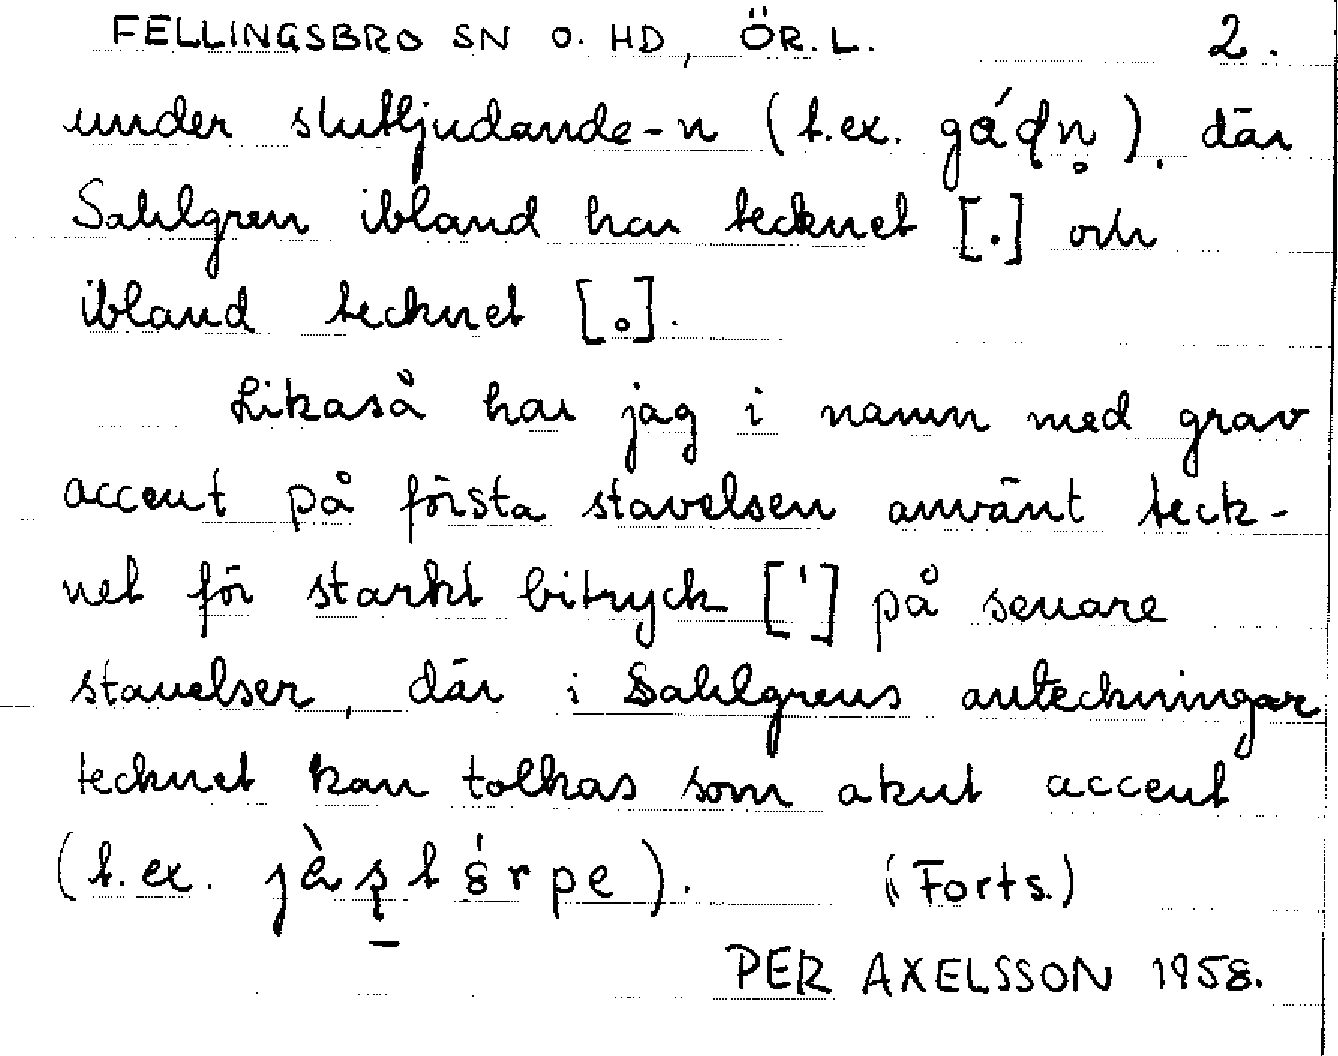 FELLINGSBRO SN O. HD, ÖR. L. 2.
under slutljudande -n (t.ex. gá́ɖn̥), där
Sahlgren ibland har tecknet [.] och
ibland tecknet [˳].
Likaså har jag i namn med grav
accent på första stavelsen använt teck-
net för starkt bitryck [ˈ] på senare
stavelser, där i Sahlgrens anteckningar
tecknet kan tolkas som akut accent
(t.ex.
(Forts.)
PER AXELSSON 1958.